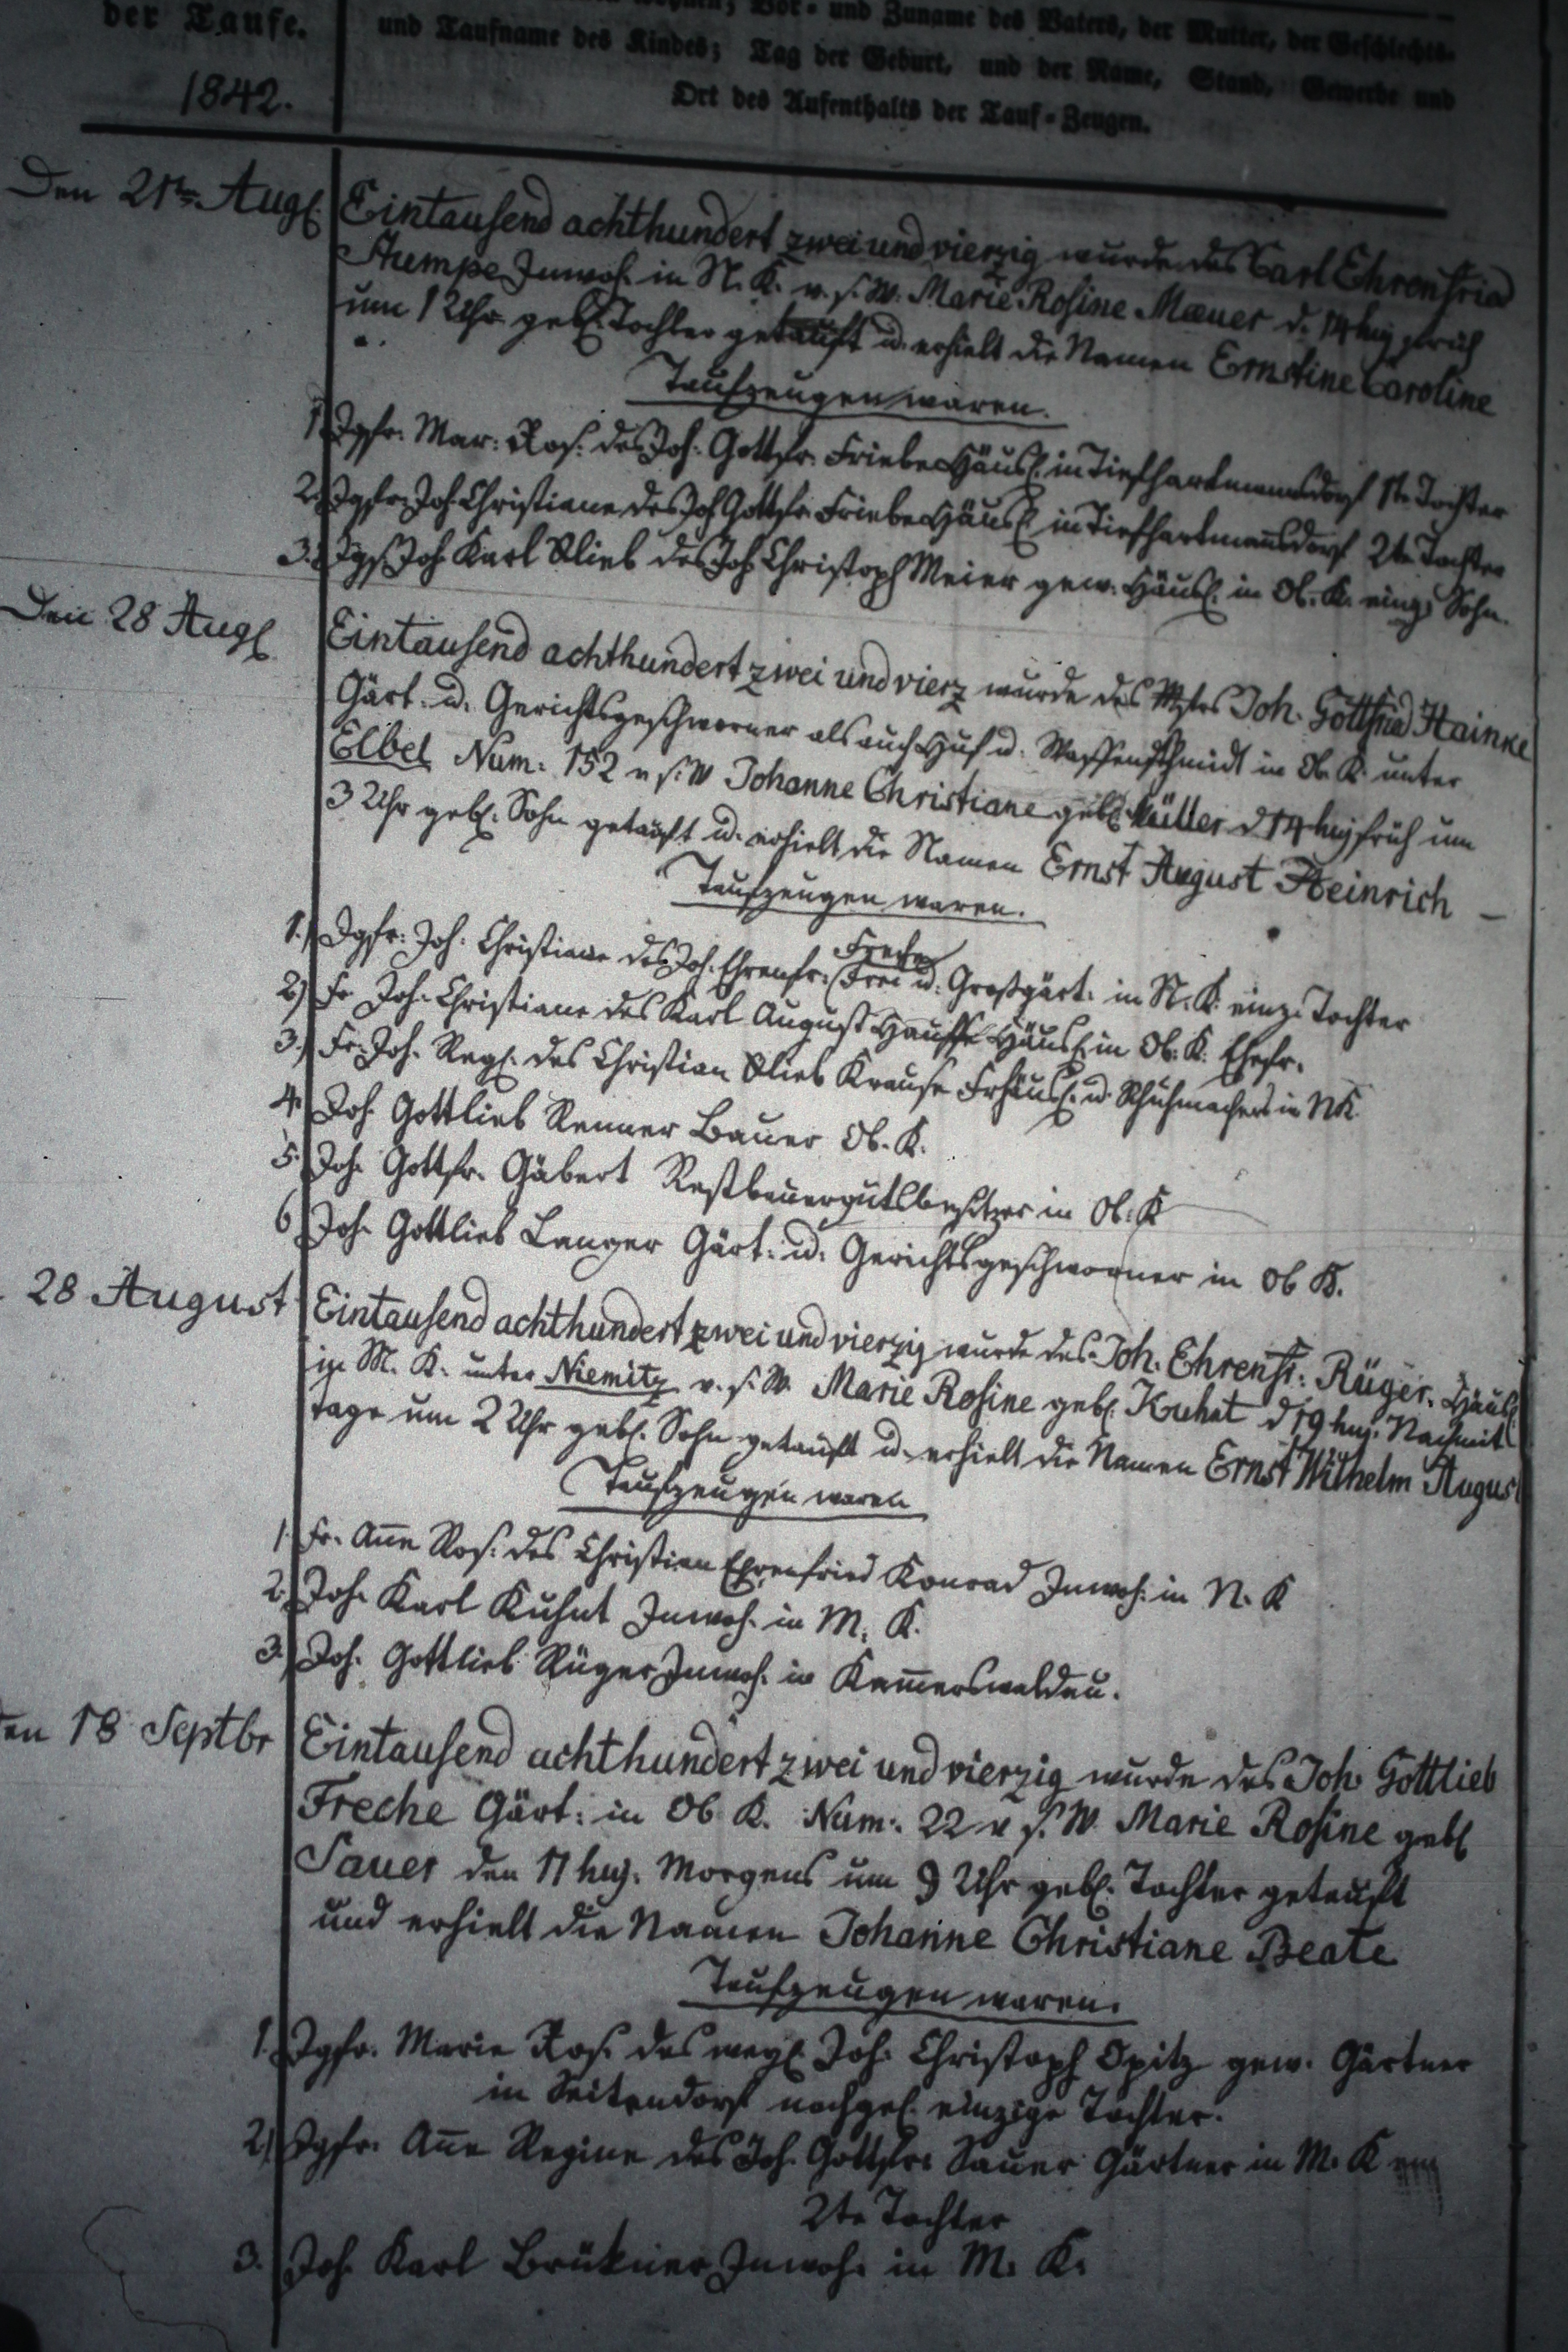 der Taufe.
1842.
Vor- und Zuname des Vaters, der Mutter, der Geschlechts-
und Taufname des Kindes; Tag der Geburt, und der Name, Stand, Gewerbe und
Ort des Aufenthalts der Tauf-Zeugen.
Den 21ten Augl.
Eintausend achthundert zwei und vierzig wurde des Carl Ehrenfried
Stumpe Inwoh. in N. K. v. s. W. Marie Rosine Mauer d. 14 huj früh
um 1 Uhr gebl. Tochter getauft u. erhielt die Namen Ernstine Caroline
Taufzeugen waren.
1. Jgfr. Mar: Ros. des Joh. Gottfr. Friebe Häusl. in Tiefhartmannsdorf 1te Tochter
2. Jgfr. Joh Christiane des Joh Gottfr. Friebe Häusl. in Tiefhartmansdorf 2te Tochter
3. Jgs. Joh Karl Glieb des Joh Christoph Meier gew. Häusl. in Ob. K. einz. Sohn.
Den 28 Augl.
Eintausend achthundert zwei und vierz wurde des Mstrs Joh. Gottfried Hainke
Gärt. u. Gerichtsgeschworner als auch Huf u. Waffenschmidt in Ob. K. unter
Elbel Num. 152 v s. W Johanne Christiane gebl. Müller d 14 huj früh um
3 Uhr gebl. Sohn getauft u. erhielt die Namen Ernst August Heinrich –
Taufzeugen waren.
1.) Jgfr. Joh. Christiane des Joh. Ehrenfr. Freche Frei u. Großgärt. in N. K. einz. Tochter
2) Fr Joh. Christiane des Karl August Hauffe Häusl. in Ob. K. Ehefr.
3.) Fr. Joh. Regl. des Christian Glieb Krause Frhäusl. u. Schuhmachers in NK.
4. Joh Gottlieb Renner Bauer Ob. K.
5. Joh. Gottfr. Gäbert Restbauergutsbesitzer in Ob. K
6 Joh Gottlieb Langer Gärt. u. Gerichtsgeschworner in Ob K.
28 August
Eintausend achthundert zwei und vierzig wurde des Joh. Ehrenfr. Rüger. Häusl.
in M. K. unter Niemitz v. s. W. Marie Rosine gebl. Kuhnt d 19 huj. Nachmit
tage um 2 Uhr gebl. Sohn getauft u. erhielt die Namen Ernst Wilhelm August
Taufzeugen waren
1. Fr. Ann Ros. des Christian Ehrenfried Konrad Inwoh. in N. K
2. Joh. Karl Kuhnt Inwoh. in M. K.
3. Joh. Gottlieb Rüger Inwoh. in Kammerswaldau.
en 18 Septbr
Eintausend achthundert zwei und vierzig wurde des Joh. Gottlieb
Freche Gärt. in Ob K. Num. 22 v s. W. Marie Rosine gebl
Sauer den 11 huj. Morgens um 9 Uhr gebl. Tochter getauft
und erhielt die Namen Johanne Christiane Beate
Taufzeugen waren.
1. Jgfr. Marie Ros. des weyl. Joh. Christoph Opitz gew. Gärtner
in Seitendorf nachgel. einzige Tochter.
2.) Jgfr. Ann Regine des Joh. Gottfr. Sauer Gärtner in M. K
2te Tochter
3. Joh Karl Brükner Inwoh. in M. K.